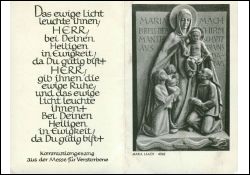 Das ewige Licht
leuchte ihnen,
HERR,
bei Deinen
Heiligen
in Ewigkeit,
da Du gütig bist+
HERR,
gib ihnen die
ewige Ruhe,
und das ewige
Licht leuchte
ihnen+
Bei Deinen
Heiligen
in Ewigkeit,
da Du gütig bist+
Kommuniongesang
aus der Messe für Verstorbene
MARIA
MACH
BREIT DEIN
MANTEL
AUS